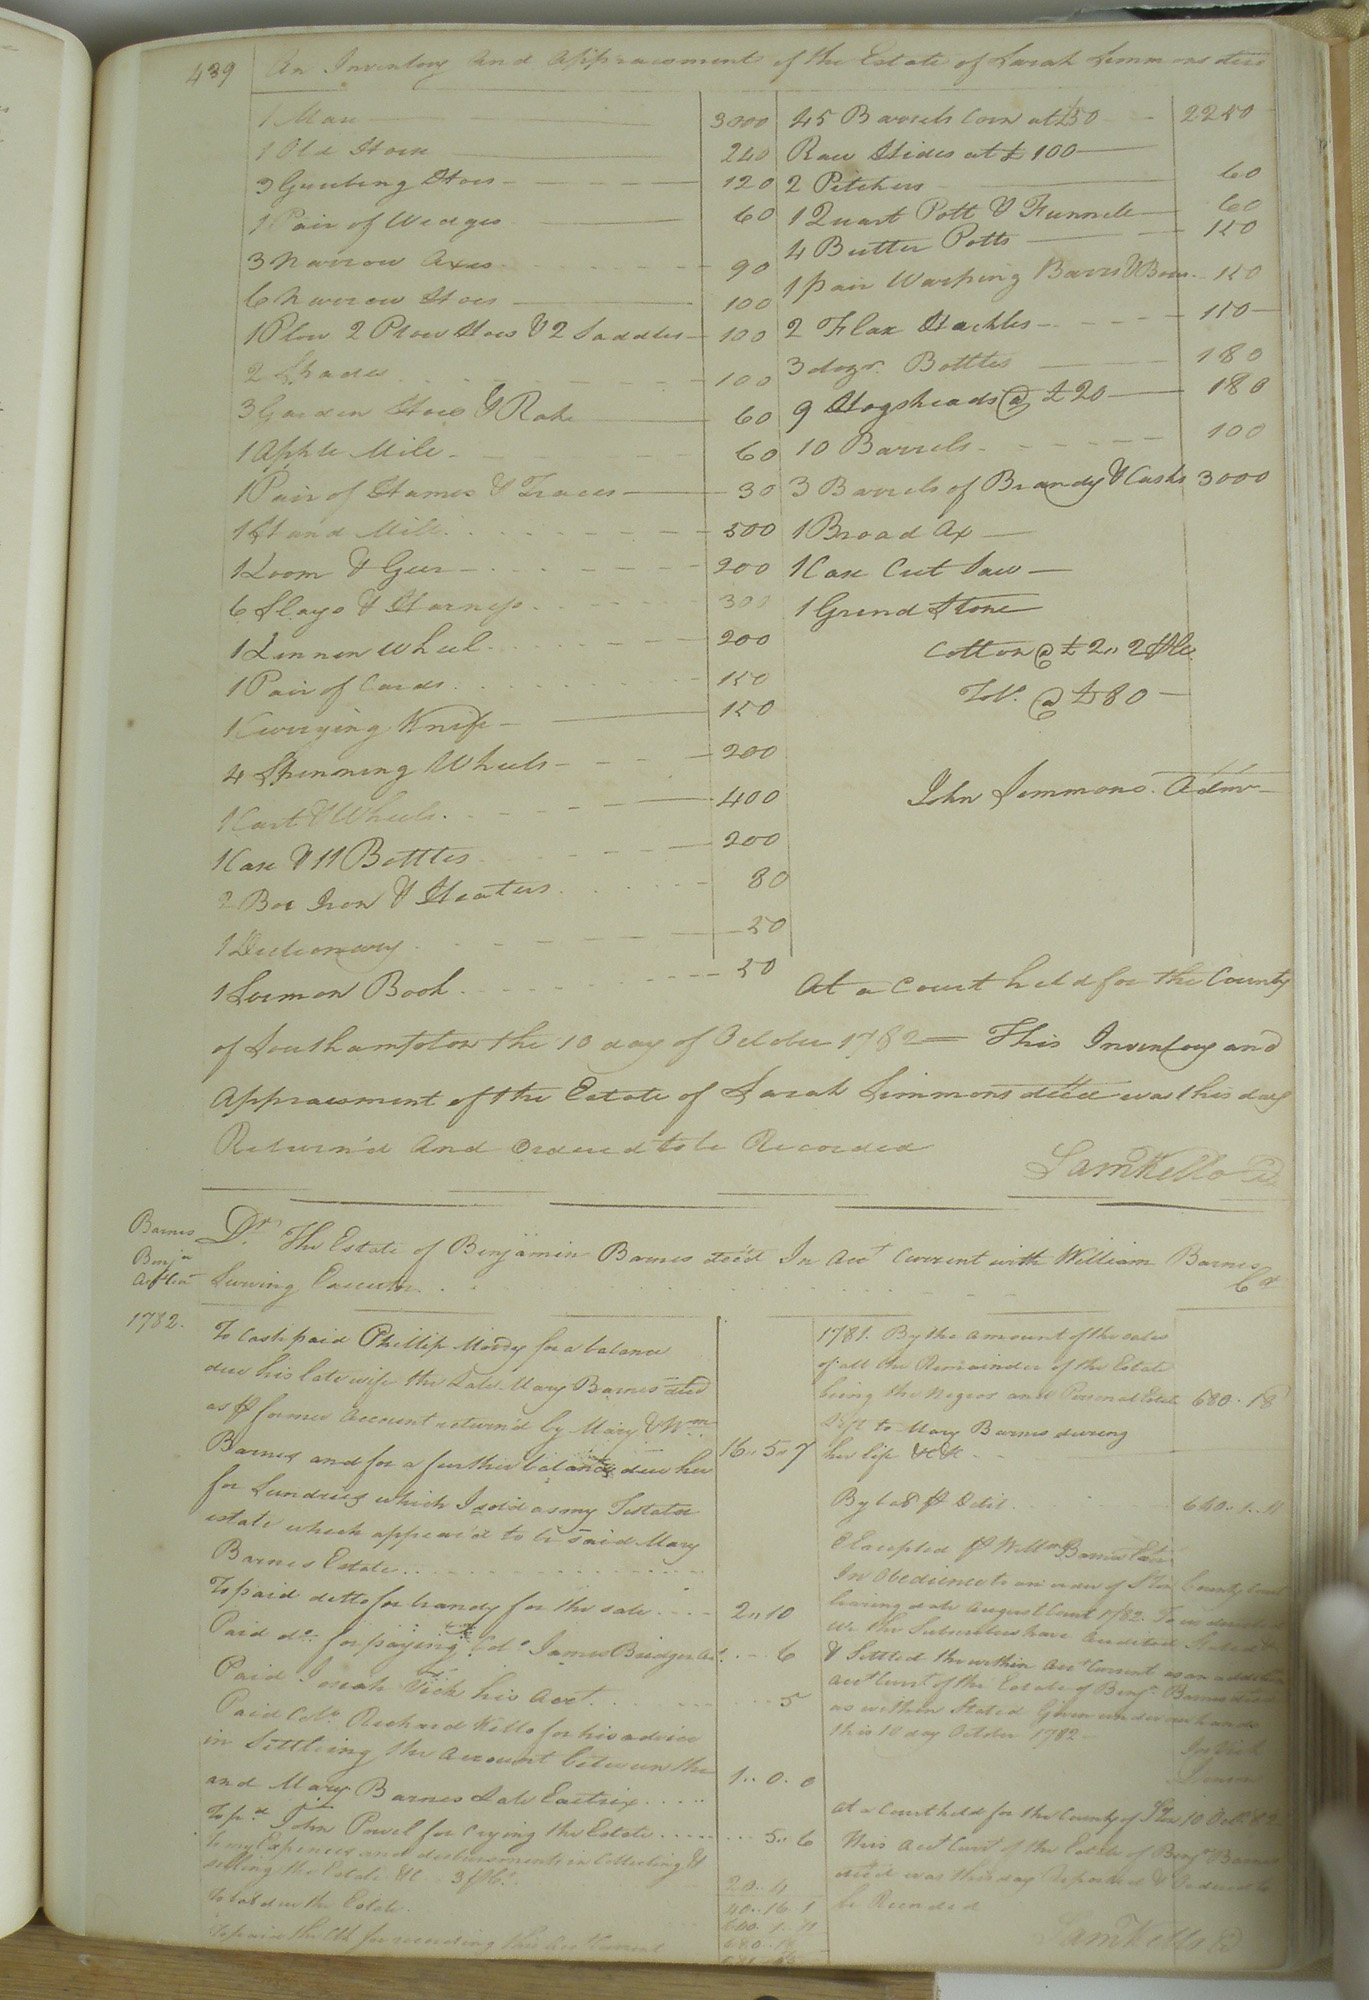 439
An Inventory and Appraisement of the Estate of Sarah Simmons decd
1 Mare 3000
1 Old Horse 240
3 Grubing Hoes 120
1 Pair of Wedges 60
3 Narrow Axes 90
6 Narrow Hoes 100
1 Plow 2 Plow Hoes & 2 Saddles 100
2 Spades 100
3 Garden Hoes & Rake 60
1 Apple Mile 60
1 Pair of Hames & Traces 30
1 Hand Mill 500
1 Loom & Geer 200
6 Slays & Harness 300
1 Linnen Wheel 200
1 Pair of Cards 150
1 Currying Knife 150
4 Spinning Wheels 200
1 Cart & Wheels 400
1 Case & 11 Bottles 200
2 Box Iron & Heaters 80
1 Dictionary 50
1 Sermon Book 50
45 Barrels Corn at £50 2250
Raw Hides at £100
2 Pitchers 60
1 Quart Pott & Funnele 60
4 Butter Potts 150
1 pair Warping Barrs & Boxes 150
2 Flax Hackles 150
3 dozn. Bottles 180
9 Hogsheads @ £20 180
10 Barrels 100
3 Barrels of Brandy & Casks 3000
1 Broad Ax
1 Case Cut Saw
1 Grind Stone
Cotton @ £2..2 ⅌ lb.
Tobo. @ £80
John Simmons. Admr
At a Court held for the County
of Southampton the 10 day of October 1782 — This Inventory and
Appraisment of the Estate of Sarah Simmons decd was this day
Return'd and Ordered to be Recorded
Saml Kello Cl
Barnes
Benja
Acct Cur
Dr. The Estate of Benjamin Barnes decd In Acct Current with William Barnes
Surving Executor Cr
1782.
To Cash paid Phillip Moody for a balance
due his late wife the Late Mary Barnes decd
as ⅌ former Account return'd by Mary & Wm.
Barnes and for a further balance due her
for Sundries which I sold as my Testator
estate which appear'd to be said Mary
Barnes Estate 16..5..7
To paid ditto for brandy for the sale 2..10
Paid do. for paying Colo. James Bridger Act. 6
Paid Josiah Vick his Acct. 5
Paid Colo. Richard Kello for his advice
in Settleing the Account between the
and Mary Barnes Late Exctrix 1..0.0
To pd John Powel for Crying the Estate 5..6
To my Expences and disbursments in Collecting &
selling the Estate &c 3 ⅌ Ct. 20..4
To bal due the Estate. 40..16.1
640..1..11
680..18
1781. By the amount of the sales
of all the Remainder of the Estate
being the Negros and Personal Estate 680.18
Left to Mary Barnes during
her life &c &c
By bale ⅌ Debit 640..1..11
Excepted ⅌ Willm Barnes Exr
In Obedience to an order of Stn County Court
bearing date August Court 1782. To us directed
We the Subscribers have Audited Stated
& Settled the within Acct Current as an addition
Acct Curt of the Estate of Benja. Barnes decd
as within Stated Given under our hands
this 10 day October 1782
At a Court held for the County of Stn 10 Octr. 82
this Acct Curt of the Estate of Benja Barnes
decd was this day Reported & Ordered to
be Recorded
Saml Kello Cl